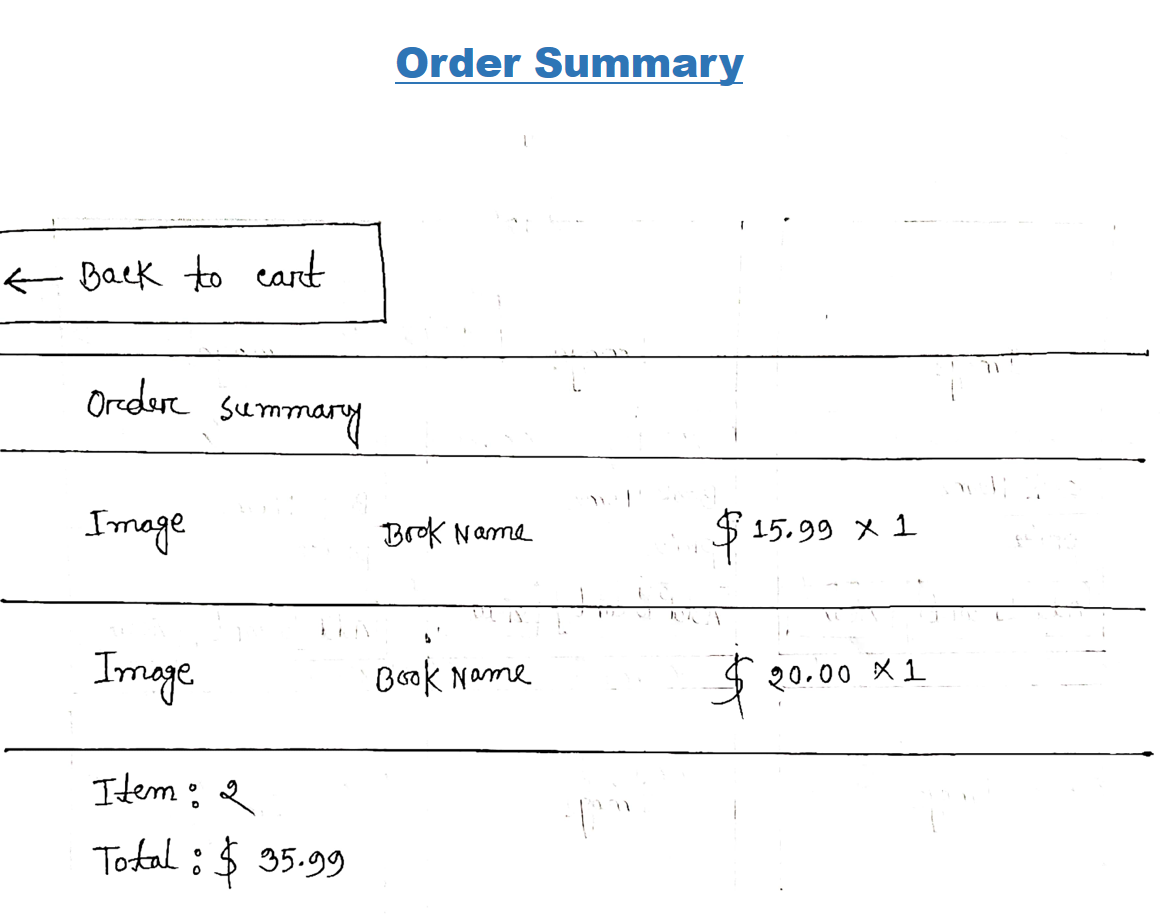 Order Summary
← Back to cart
Order summary
Image Book Name $ 15.99 x 1
Image Book Name $ 20.00 x 1
Item: 2
Total: $ 35.99